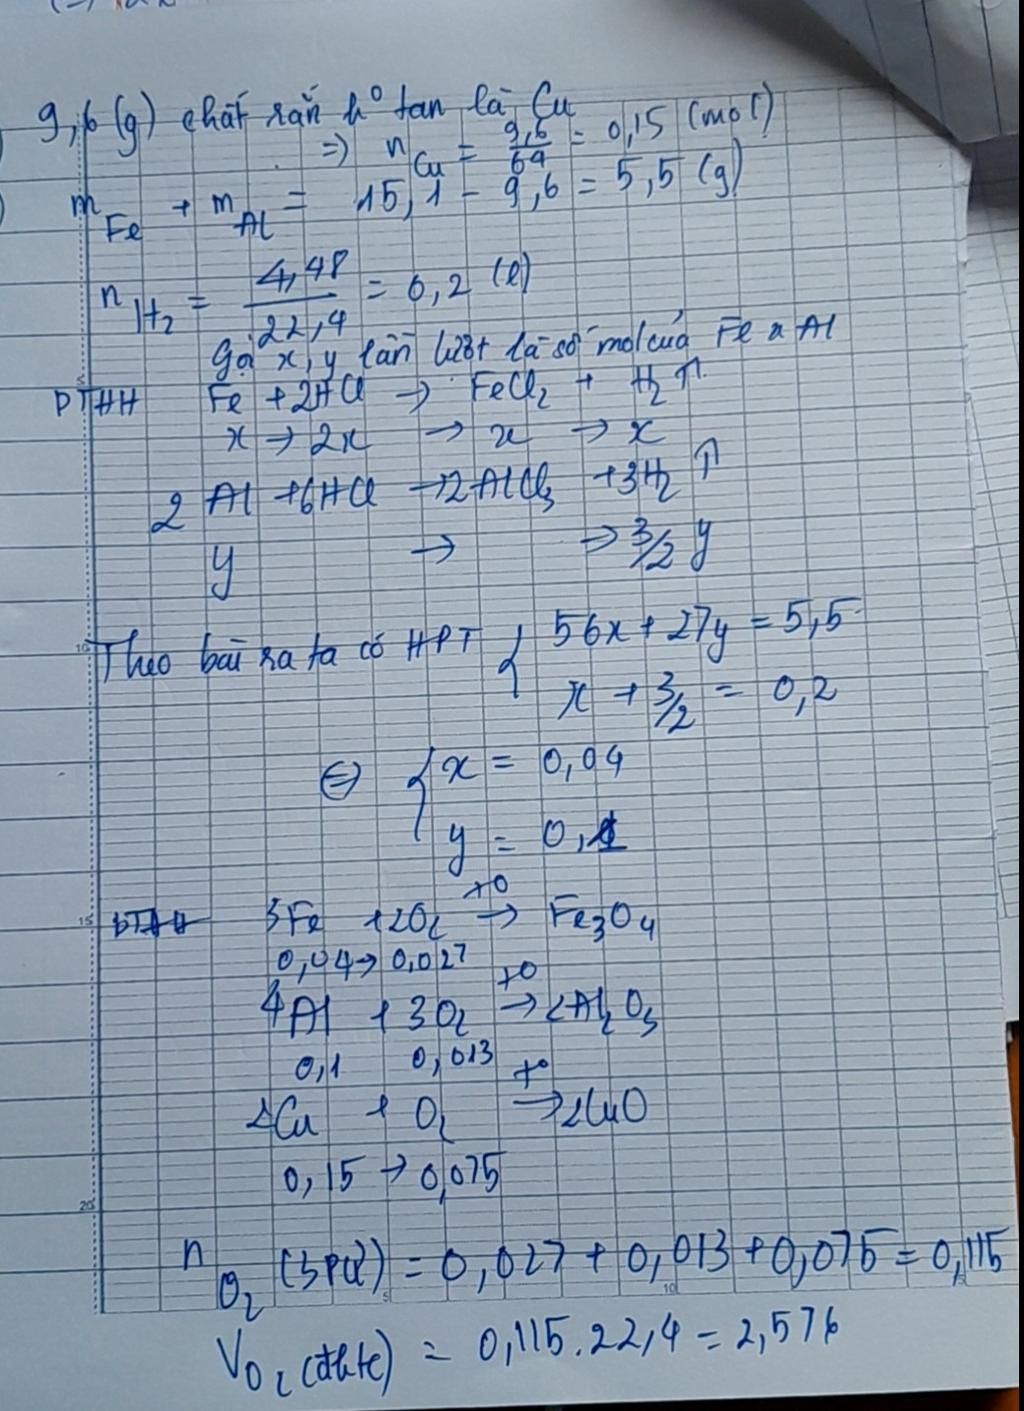 9,6 (g) chất rắn k° tan là Cu
=> n Cu = 9,6/64 = 0,15 (mol)
m Fe + m Al = 15,1 - 9,6 = 5,5 (g)
n H2 = 4,48/22,4 = 0,2 (l)
Gọi x, y lần lượt là số mol của Fe & Al
PTHH Fe + 2HCl → FeCl2 + H2 ↑
x → 2x → x → x
2 Al + 6HCl → 2AlCl3 + 3H2 ↑
y → → 3/2 y
Theo bài ra ta có HPT { 56x + 27y = 5,5
x + 3/2 = 0,2
⇔ { x = 0,04
y = 0,1
PTHH 3Fe + 2O2 t° → Fe3O4
0,04 → 0,027
4Al + 3O2 t° → 2Al2O3
0,1 0,013
2Cu + O2 t° → 2CuO
0,15 → 0,075
n O2 (3PƯ) = 0,027 + 0,013 + 0,075 = 0,115
V O2 (đktc) = 0,115.22,4 = 2,576